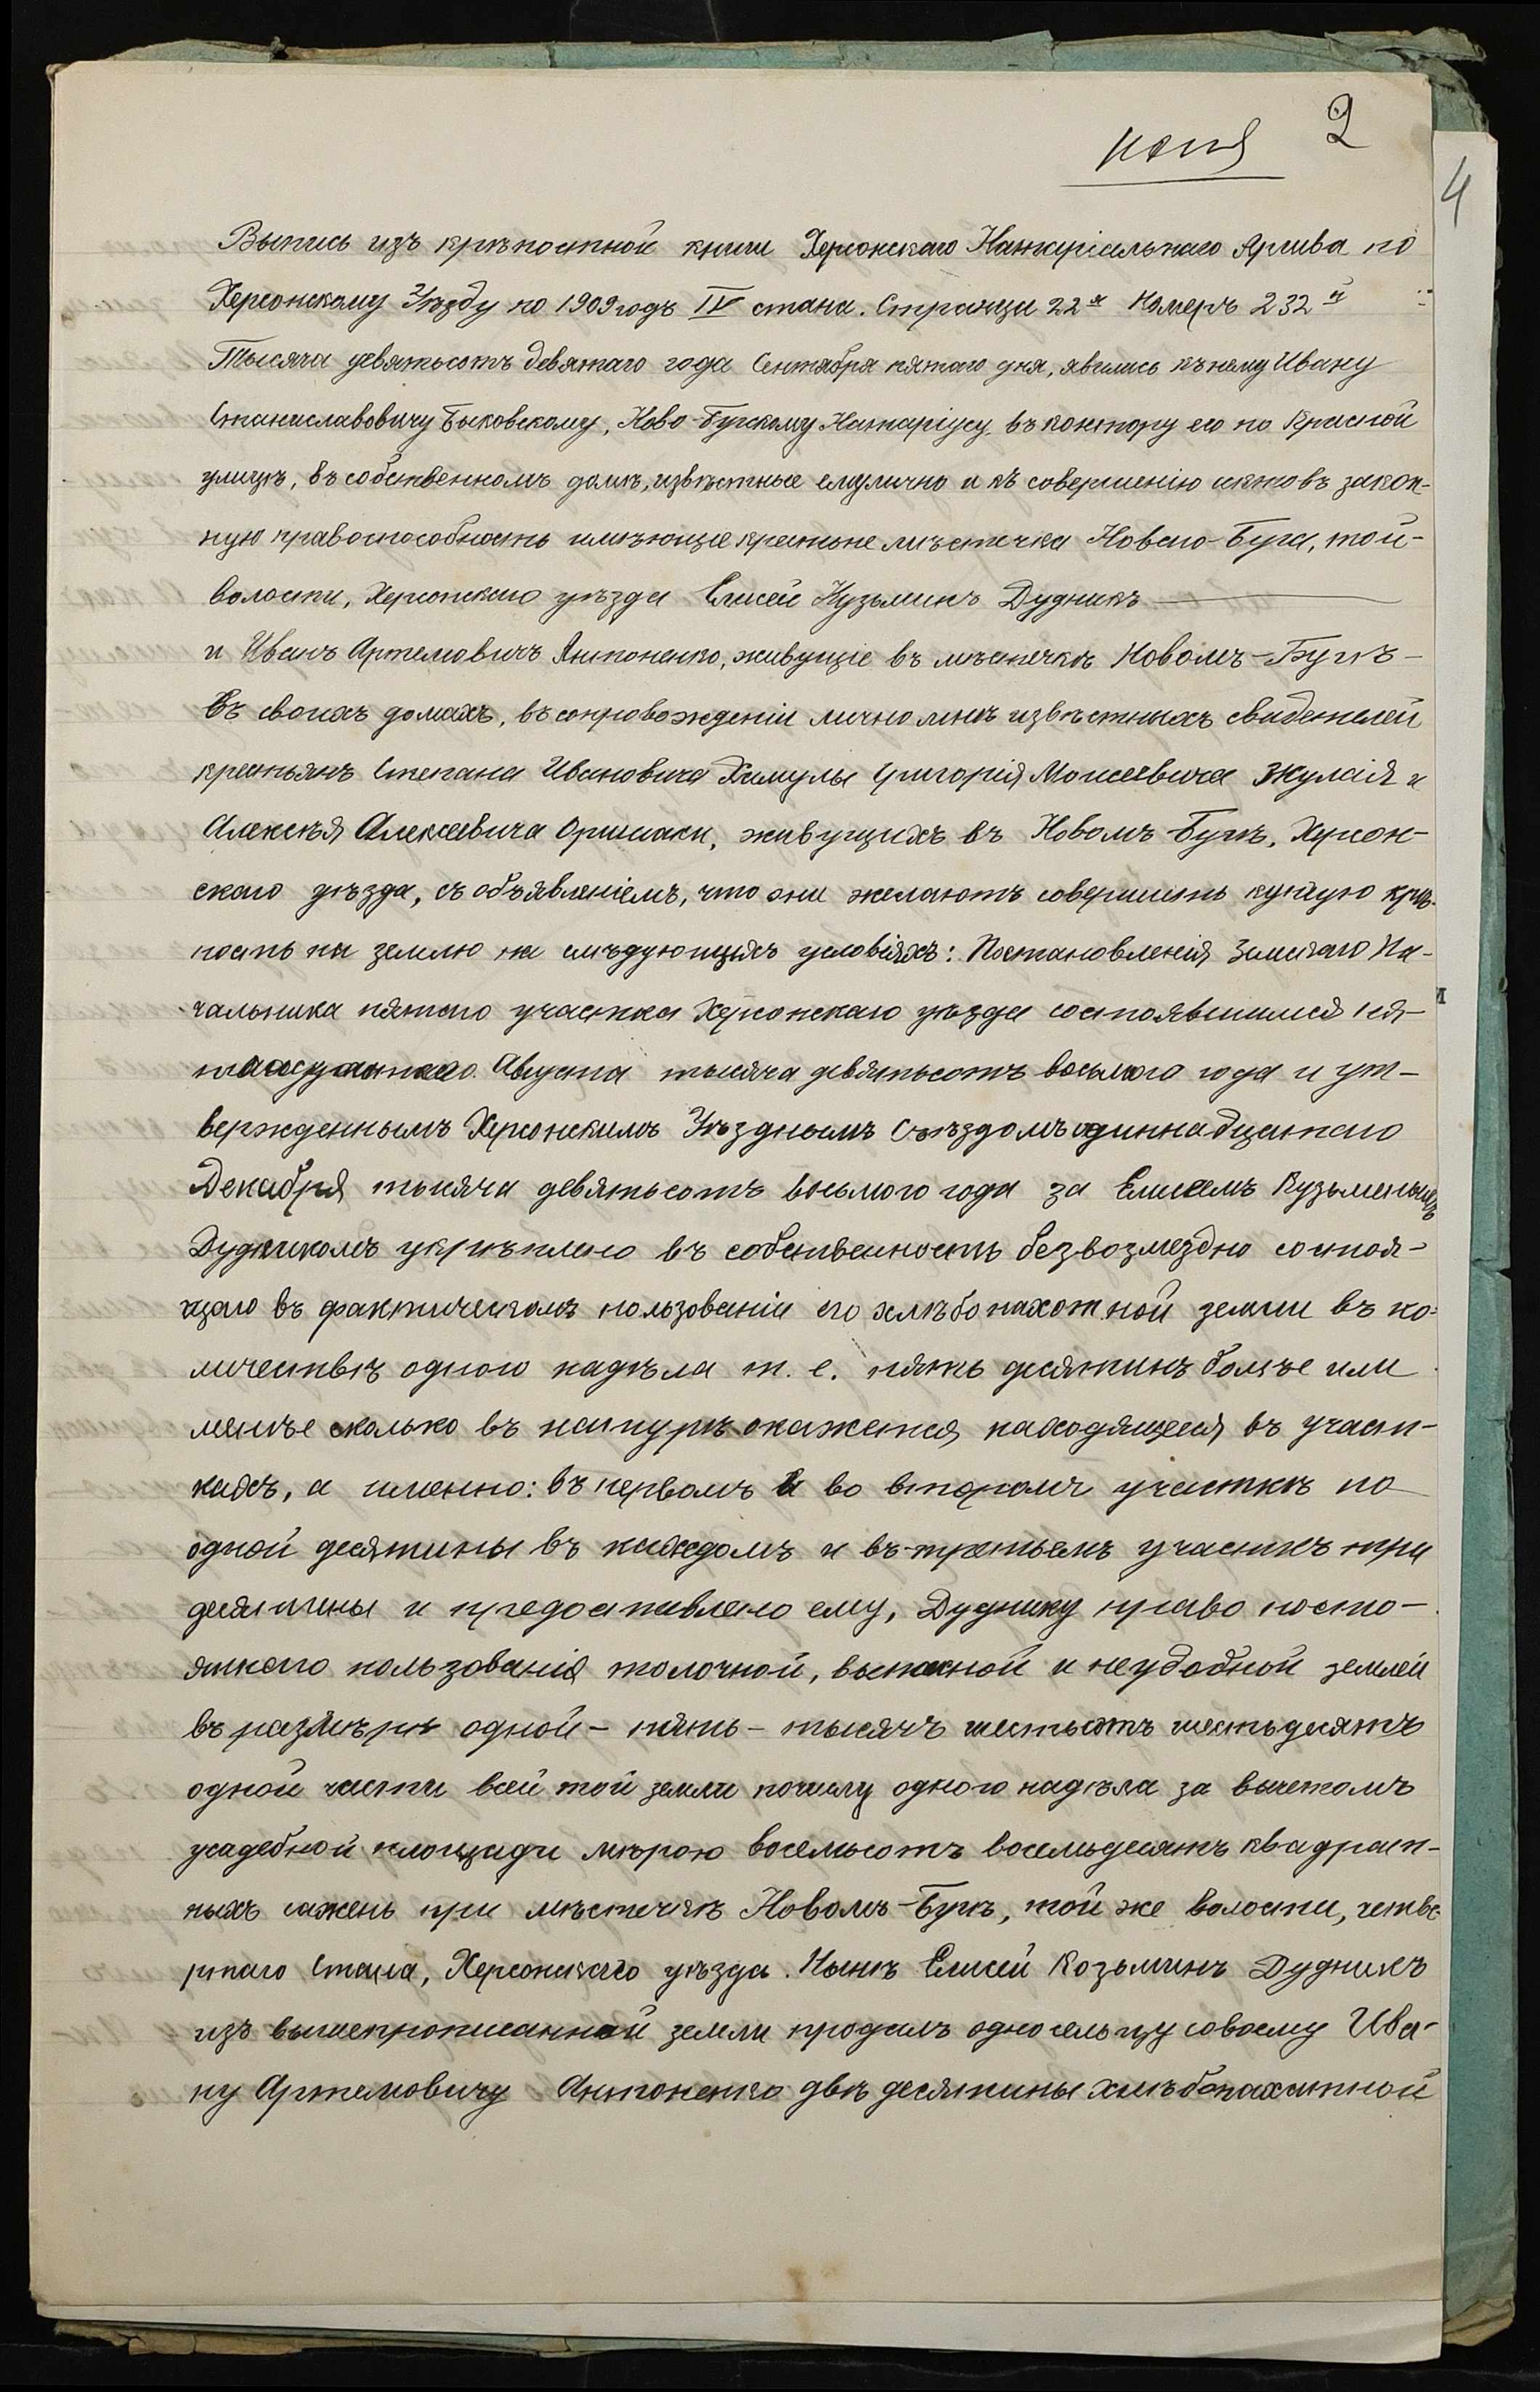 копія 2
4
Выпись изъ крѣпостной книги Херсонскаго Натаріальнаго Архива по
Херсонскому Уѣзду по 1909 годъ IV стана. Страница 22я Номеръ 232й
Тысяча девятьсотъ девятаго года Сентября пятаго дня, явились къ нему Ивану
Станиславовичу Быковскому, Ново-Бугскому Натаріусу, въ контору его по Красной
улицѣ, въ собственномъ домѣ, извѣстные ему лично и къ совершенію актовъ закон-
ную правоспособность имѣющіе крестьне мѣстечка Новаго-Буга, той-
волости, Херсонскаго уѣзда Елисей Кузьминъ Дудникъ
и Иванъ Артемовичъ Антоненко, живущіе въ мѣстечкѣ Новомъ-Бугѣ-
въ своихъ домахъ, въ сопровожденіи лично мнѣ извѣстныхъ свидѣтелей
крестьянъ Степана Ивановича Химулы Григорія Моисеевича и
Алексѣя Алексеевича живущихъ въ Новомъ-Бугѣ, Херсон-
скаго уѣзда, съ объявленіемъ, что они желаютъ совершить купчую крѣ-
пость на землю на слѣдующихъ условіяхъ: Постановленія Земскаго На-
чальника пятаго участка Херсонскаго уѣзда состоявшимся
Августа тысяча девятьсотъ восьмого года и ут-
вержденнымъ Херсонскимъ Уѣзднымъ Съѣздомъ одиннадцатаго
Декабря тысяча девятьсотъ восьмого года за Елисеемъ Кузьменымъ
Дудникомъ укрѣплено въ собственность безвозмездно состоя-
щаго въ фактическомъ пользованіи его хлѣбопахотной земли въ ко-
личествѣ одного надѣла т. е. пять десятинъ болѣе или
менѣе сколько въ натурѣ окажется находящееся въ участ-
кахъ, а именно: въ первомъ и во второмъ участкѣ по
одной десятины въ каждомъ и въ третьемъ участкѣ три
десятины и предоставлено ему, Дуднику право посто-
яннаго пользованія толочной, выгонной и неудобной землей
въ размѣрѣ одной - пять - тысячъ шестьсотъ шестьдесятъ
одной части всей той земли почислу одного надѣла за вычетомъ
усадебной площади мѣрою восемьсотъ восемьдесятъ квадрат-
ныхъ сажень при мѣстечкѣ Новомъ-Бугѣ, той же волости, четве
ртаго Стана, Херсонскаго уѣзда. Нынѣ Елисей Козьминъ Дудникъ
изъ вышепрописанной земли продалъ односельцу совоему Ива-
ну Артемовичу Антоненко двѣ десятины хлѣбопахатной